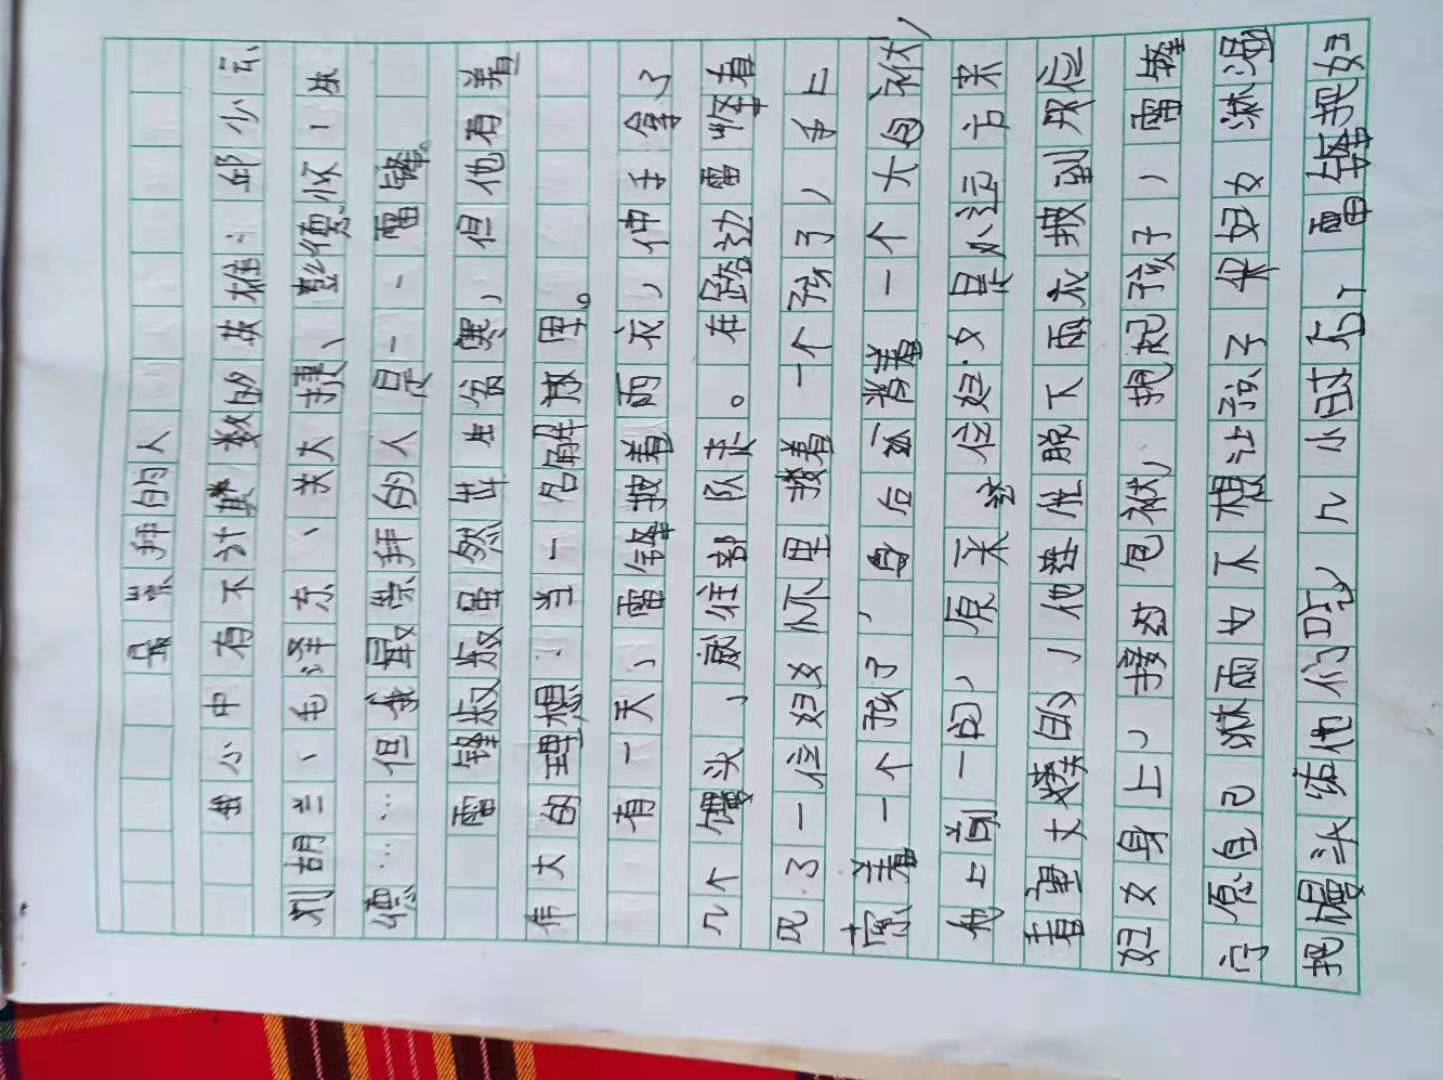 最崇拜的人
我小中有不计其数的英雄：邱少云
刘胡兰、毛泽东、关大捷、彭德怀、朱
德……但我最崇拜的人是——雷锋。
雷锋叔叔虽然出生贫寒，但他有着
伟大的理想：当一名解放军。
有一天，雷锋披着雨衣，伸手拿了
几个馒头，就往部队走。在路边雷锋看
见了一位妇女怀里搂着一个孩子，手上
牵着一个孩子，身后还背着一个大包袱，
他上前一问，原来这位妇女是从远方来
看望丈夫的，他连忙脱下雨衣披到那位
妇女身上，接过包袱，抱起孩子，雷锋
宁愿自己淋雨也不想让孩子和妇女淋湿
把馒头给他们吃，几小时后，雷锋把妇